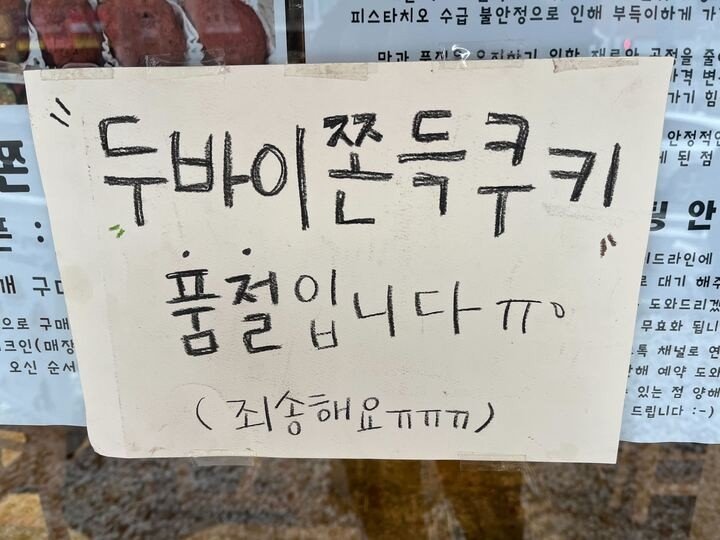 피스타치오 수급 불안정으로 인해 부득이하게
두바이쫀득쿠키
품절입니다 ㅠㅠ
(죄송해요ㅠㅠㅠ)
안정적인
된 점
안
개
으로 구매
크인(매장
오신 순서
이드라인에
대기 해주
도와드리겠
무효화 됩니
톡 채널로 연
해 예약 도와
있는 점 양해
드립니다 :-)